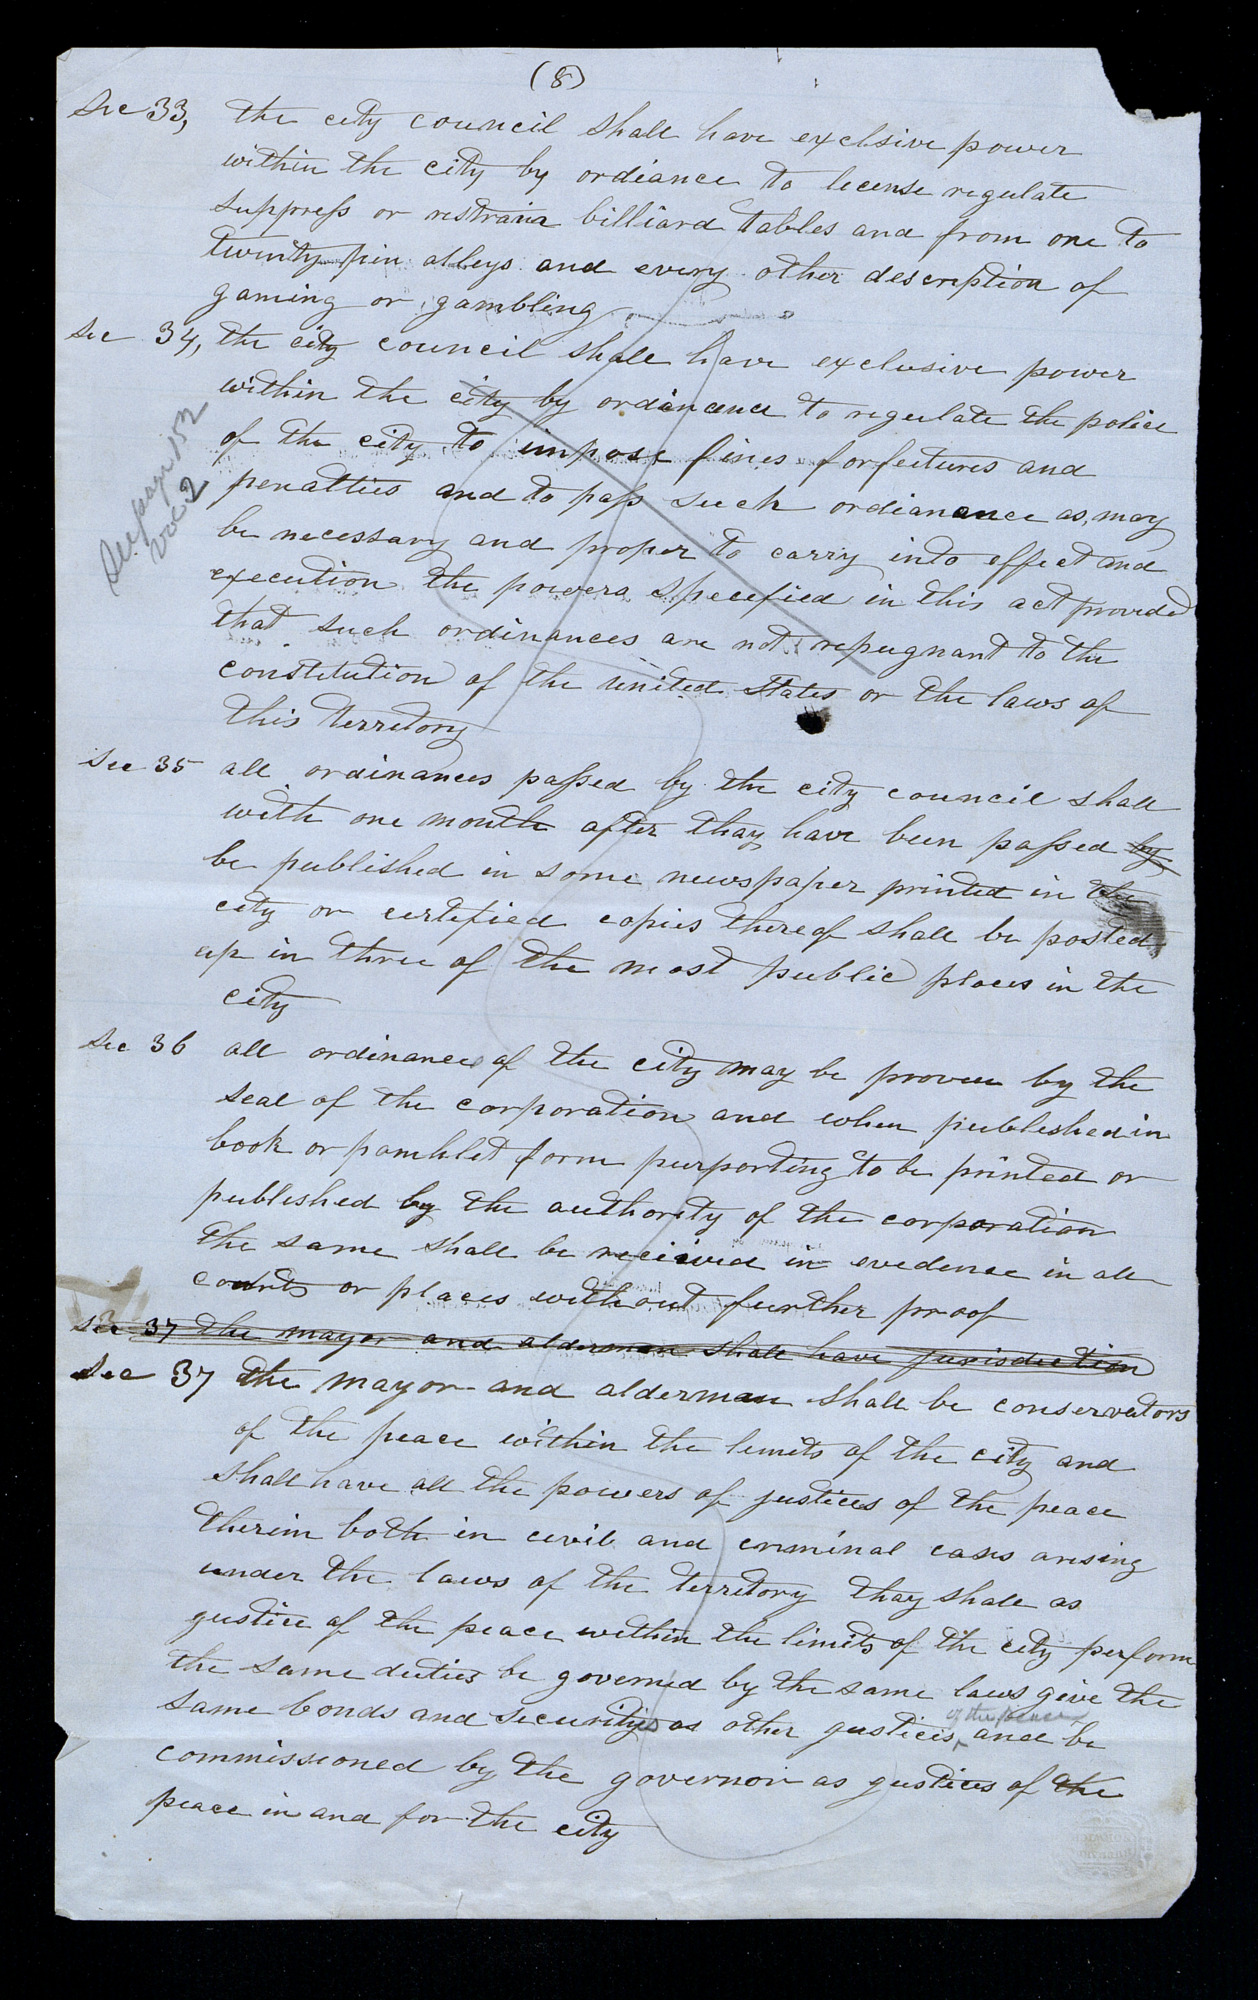 (8)
Sec 33, the city council shall have exclsive power
within the city by ordiance to license regulate
suppress or restrain billiard tables and from one to
twenty pin alleys and every other description of
gaming or gambling
Sec 34, the city council shall have exclusive power
within the city by ordinance to regulate the police
of the city to impose fines forfeitures and
penalties and to pass such ordianance as may
be necessary and proper to carry into effect and
execution the powers specefied in this act provided
that such ordinances are not repugnant to the
constitution of the united States or the laws of
this Territory
See page 152
vol 2
Sec 35 all ordinances passed by the city council shall
with one month after thay have been passed by
be published in some newspaper printed in the
city or certified copies thereof shall be posted
up in three of the most public places in the
city
Sec 36 all ordinances of the city may be proven by the
seal of the corporation and when published in
book or pamhlet form purporting to be printed or
published by the authority of the corporation
the same shall be received in evedence in all
courts or places without further proof
Sec 37 the mayor and alderman shall have jurisdiction
Sec 37 the mayor and alderman shall be conservators
of the peace within the limits of the city and
shall have all the powers of justices of the peace
therein both in civil and criminal cases arising
under the laws of the territory thay shall as
justice of the peace within the limits of the city perform
the same duties be governed by the same laws give the
same bonds and securities as other justices of the peace and be
commissioned by the governor as justices of the
peace in and for the city